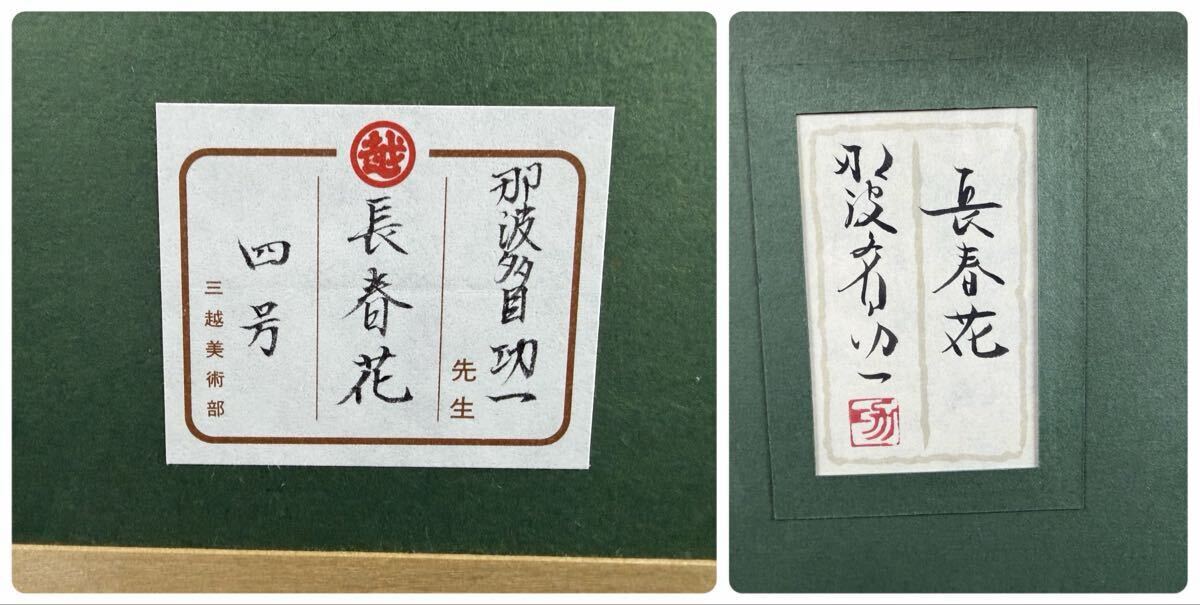 越
那波多目功一
先生
長春花
四号
三越美術部
長春花
那波多目功一